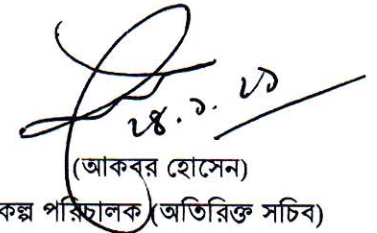 ২৪.১.২১
(আকবর হোসেন)
কল্প পরিচালক (অতিরিক্ত সচিব)